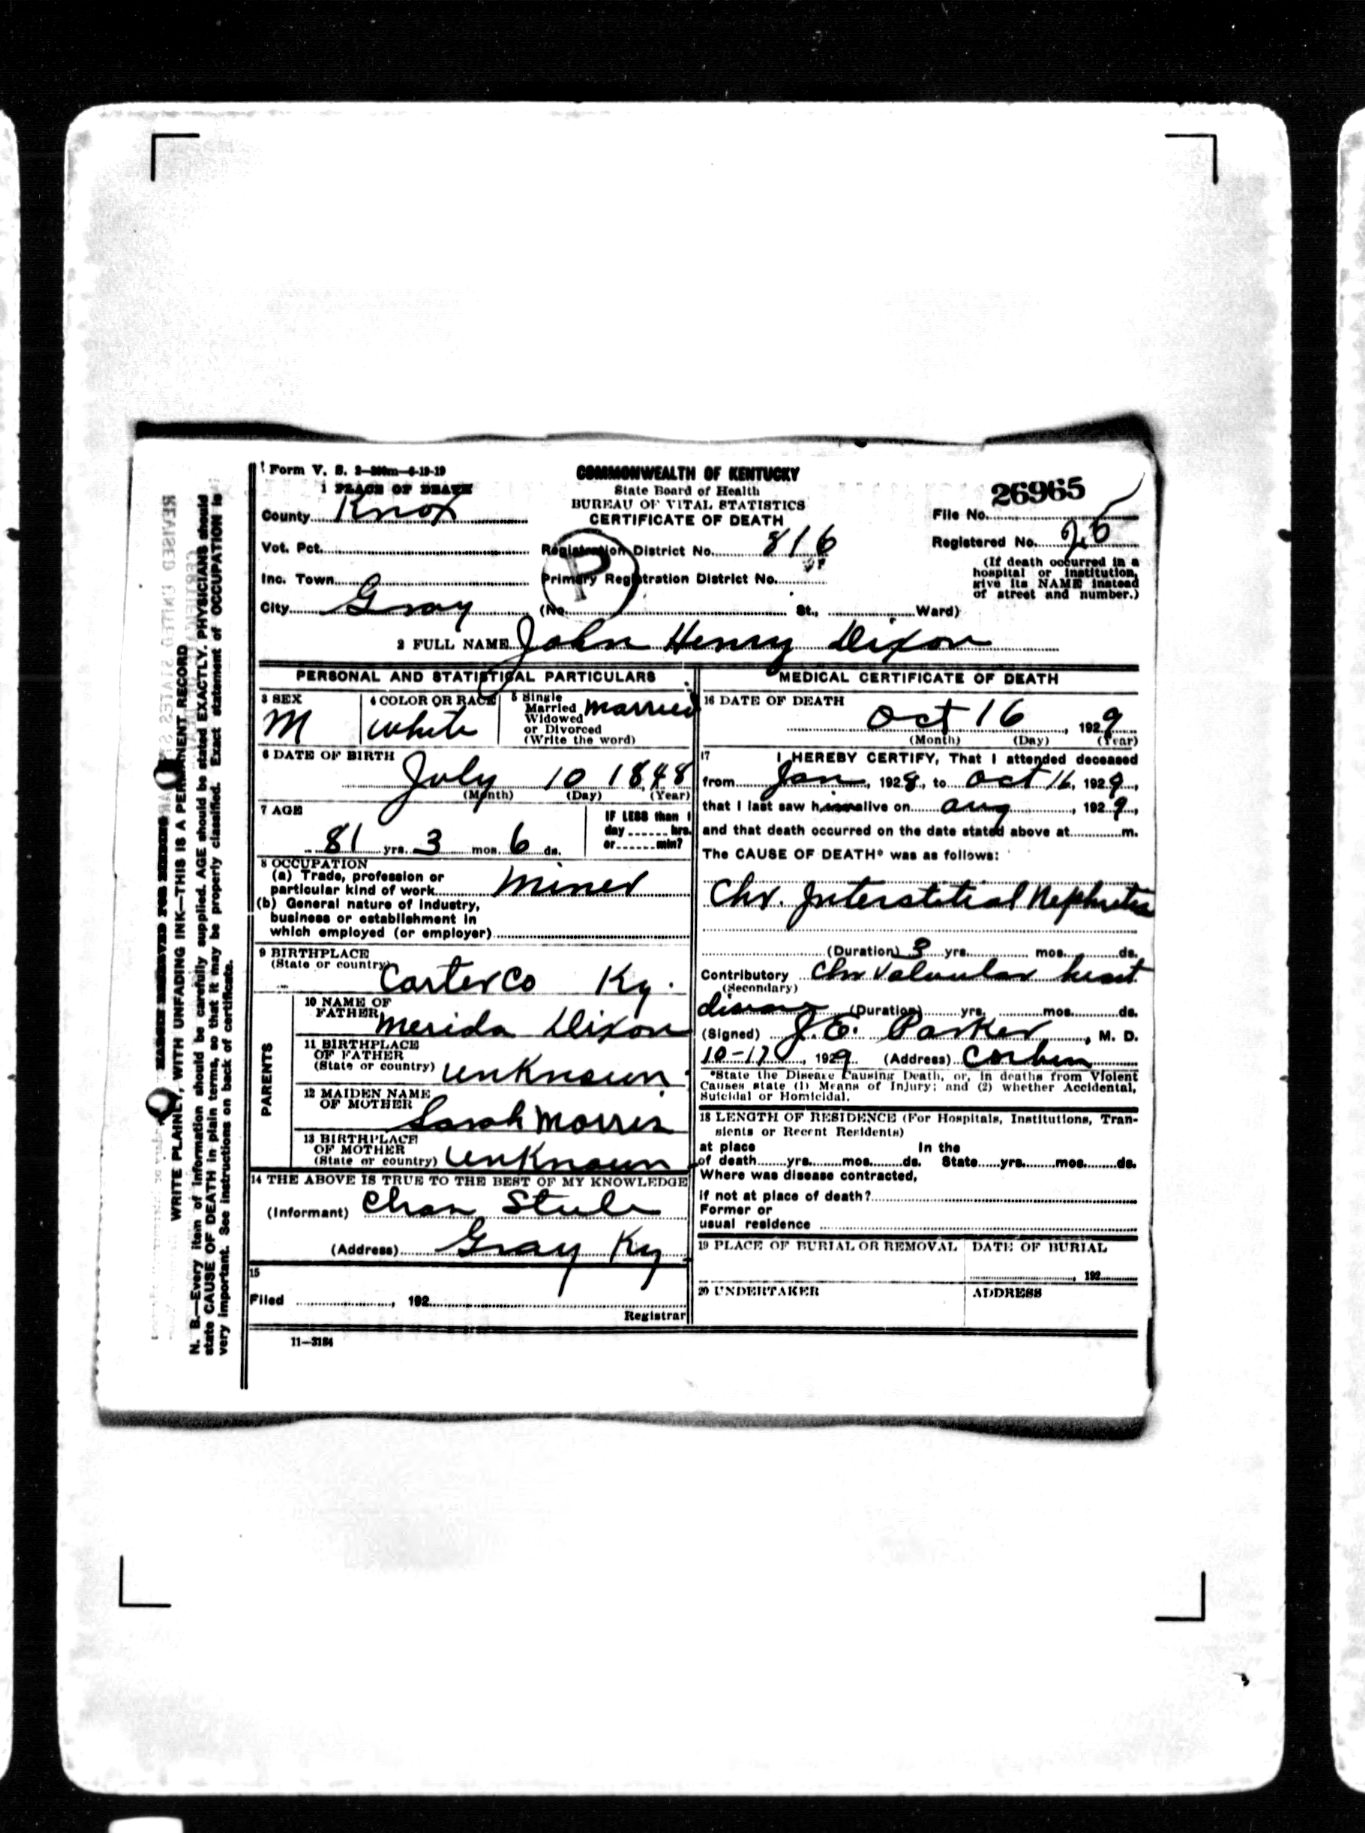 Form V. S. 2—200m—6-19-19
COMMONWEALTH OF KENTUCKY
State Board of Health
BUREAU OF VITAL STATISTICS
CERTIFICATE OF DEATH
1 PLACE OF DEATH
County Knox
Vot. Pct.
Inc. Town
City Gray
Registration District No. 816
Primary Registration District No.
(No. St., Ward)
P
26965
File No.
Registered No. 26
(If death occurred in a
hospital or institution,
give its NAME instead
of street and number.)
2 FULL NAME John Henry Dixon
PERSONAL AND STATISTICAL PARTICULARS
3 SEX
M
4 COLOR OR RACE
white
5 Single
Married
Widowed
or Divorced
(Write the word)
married
6 DATE OF BIRTH
July 10 1848
(Month) (Day) (Year)
7 AGE
81 yrs. 3 mos. 6 ds.
IF LESS than 1
day ...... hrs.
or ...... min?
8 OCCUPATION
(a) Trade, profession or
particular kind of work miner
(b) General nature of Industry,
business or establishment in
which employed (or employer)
9 BIRTHPLACE
(State or country) Carter Co Ky.
PARENTS
10 NAME OF
FATHER Merida Dixon
11 BIRTHPLACE
OF FATHER
(State or country) unknown
12 MAIDEN NAME
OF MOTHER Sarah Morris
13 BIRTHPLACE
OF MOTHER
(State or country) unknown
14 THE ABOVE IS TRUE TO THE BEST OF MY KNOWLEDGE
(Informant) Chas
(Address) Gray Ky
15
Filed , 192
Registrar
11—3184
MEDICAL CERTIFICATE OF DEATH
16 DATE OF DEATH
Oct 16, 1929
(Month) (Day) (Year)
17 I HEREBY CERTIFY, That I attended deceased
from Jan, 1928, to Oct 16, 1929,
that I last saw him alive on aug, 1929,
and that death occurred on the date stated above at m.
The CAUSE OF DEATH* was as follows:
Chr. Interstitial Nephritis
(Duration) 3 yrs. mos. ds.
Contributory Chr Valvular heart
(Secondary)
disease (Duration) yrs. mos. ds.
(Signed) J. E. Parker, M. D.
10-17, 1929 (Address) Corbin
*State the Disease Causing Death, or, in deaths from Violent
Causes state (1) Means of Injury; and (2) whether Accidental,
Suicidal or Homicidal.
18 LENGTH OF RESIDENCE (For Hospitals, Institutions, Tran-
sients or Recent Residents)
at place In the
of death yrs. mos. ds. State yrs. mos. ds.
Where was disease contracted,
if not at place of death?
Former or
usual residence
19 PLACE OF BURIAL OR REMOVAL
DATE OF BURIAL
, 192
20 UNDERTAKER
ADDRESS
MARGIN RESERVED FOR BINDING
WRITE PLAINLY, WITH UNFADING INK—THIS IS A PERMANENT RECORD
N. B.—Every item of information should be carefully supplied. AGE should be stated EXACTLY. PHYSICIANS should
state CAUSE OF DEATH in plain terms, so that it may be properly classified. Exact statement of OCCUPATION is
very important. See instructions on back of certificate.